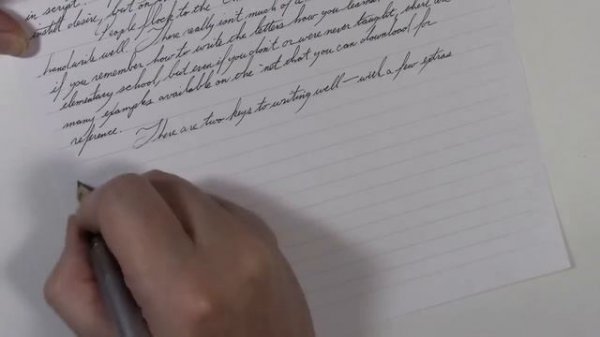 in script.
instill desire, but on
People look to the
handwrite well? There really isn't much of a
if you remember how to write the letters how you learned
elementary school but even if you don't or were never taught, there are
many examples available on the 'net that you can download for
reference. There are two keys to writing well—with a few extras